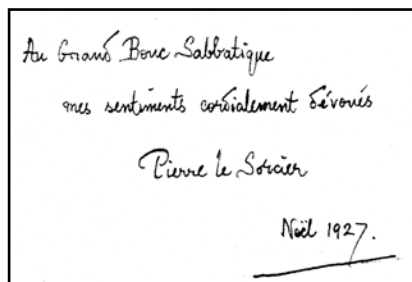 Au Grand Bouc Sabbatique
mes sentiments cordialement dévoués
Pierre le Sorcier
Noël 1927.